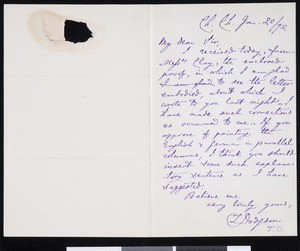 Ch. Ch. Jan. 20/72
My dear Sir,
I received today, from
Messrs Clay, the enclosed
proof, in which I am glad
I am glad to see the letter
embodied, about which I
wrote to you last night. I
have made such corrections
as occurred to me. If you
approve of printing the
English & German in parallel
columns, I think you should
insert some such explana-
tory sentence as I have
suggested.
Believe me
very truly yours,
C L Dodgson